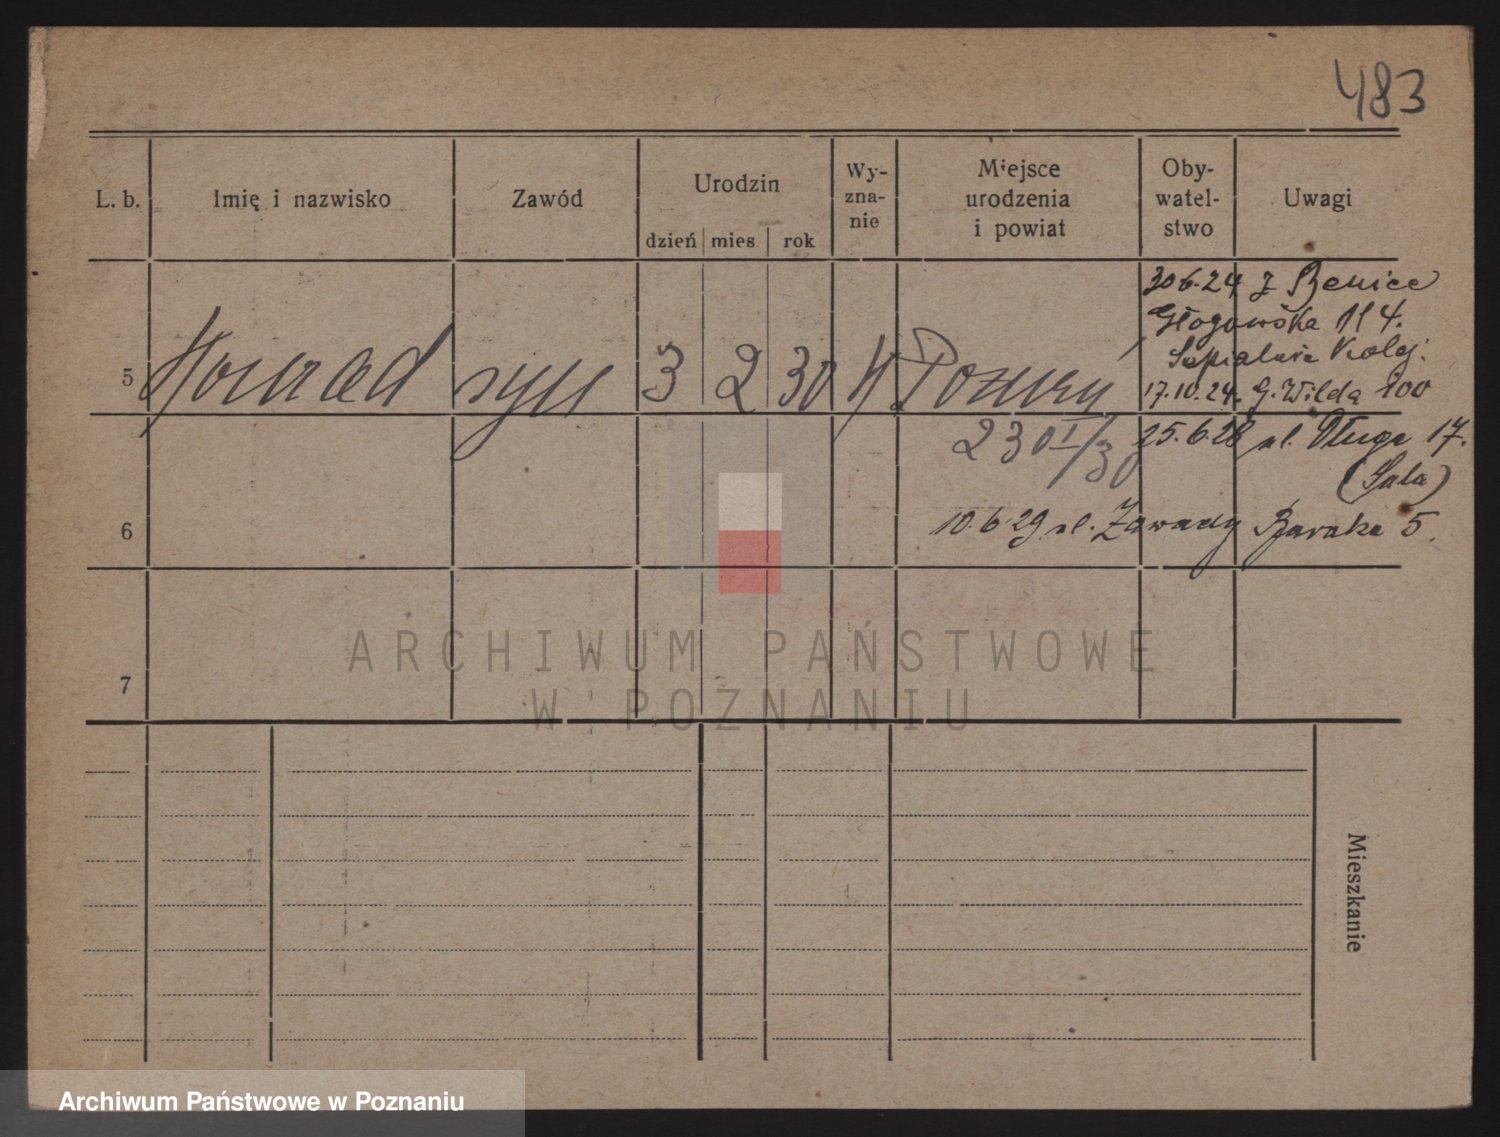 483
L. b. Imię i nazwisko Zawód Urodzin dzień mies rok Wy-zna-nie Miejsce urodzenia i powiat Oby-watel-stwo Uwagi
30.6.24 z Benice
Głogowska 114.
Kolej.
17.10.24. G. Wilda 100
5 Konrad syn 3 2 30 K Poznań
25.6.28 ul. Długa 17.
(Sala)
10.6.29 ul. Zawady Baraka 5.
6
7
ARCHIWUM PAŃSTWOWE
W POZNANIU
Mieszkanie
Archiwum Państwowe w Poznaniu